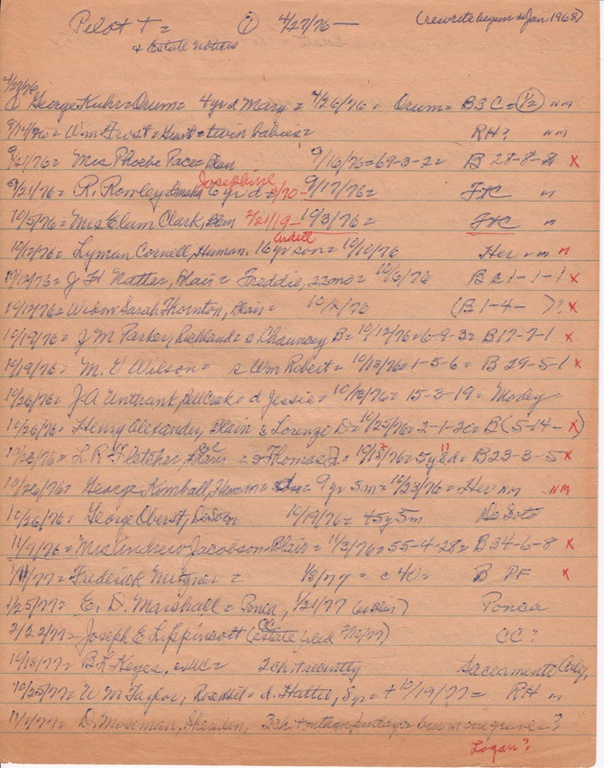 Pilot + = ① 4/27/76 — (rewrite begun in Jan. 1968)
& Estate notices
4/27/76
George Kuhr = Orum = 4 yr d Mary = 4/26/76 = Orum = B3C = ½ nm
9/14/76 = Wm Frost = Hunt = twin babies = RH? nm
9/21/76 = Mrs Phoebe Pace = Blair 9/16/76 = 69-3-2 = B 28-8- x
9/21/76 = R. Rowley Omaha Josephine 6 yr d 2/70 - 9/17/76 = FtC n
10/5/76 = Mrs Elam Clark, Blair 2/21/19 - 10/3/76 = FtC n
10/12/76 = Lyman Cornell, Herman. 16 yr son = 10/10/76 Her nm n
10/12/76 = J H Natter, Blair = Freddie, 22 mo = 10/6/76 B 21-1-1 x
10/17/76 = Widow Sarah Thornton, Blair = 10/2/76 (B 1-4- )? x
10/19/76 = J M Parker, Richland = s Chauncey B = 10/12/76 = 6-9-3 = B 17-7-1 x
10/19/76 = M. E Wilson = s Wm Robert = 10/13/76 = 1-5-6 = B 29-5-1 x
10/26/76 = J. A Unthank, Bell Creek = d Jessie = 10/18/76 = 15-3-19 = Morley
10/26/76 = Henry Alexander, Blair s Lorenzo D = 10/25/76 = 2-1-20 = B (5-14- x)
10/26/76 = L R Fletcher, Blair = s Thomas J = 10/18/76 = 5y 8d = B 23-3-5 x
10/26/76 = George Kimball, Herman = 9 yr 5m = 10/23/76 = Her nm NM
10/26/76 = George Oberst, DeSoto 10/19/76 = 45y 5m De Soto
11/9/76 = Mrs Andrew Jacobson = Blair = 11/3/76 = 55-4-28 = B 34-6-8 x
1/11/77 = Frederick Mitzner = 1/8/77 = c 40 = B PF x
1/25/77 = E. D. Marshall = Ponca, 1/21/77 Ponca
2/22/77 = Joseph E Lippincott CC (estate filed 2/10/77) CC?
10/18/77 = B L Keyes, 2 ch it recently Sacramento
10/25/77 = W M Taylor, Rose Hill = d. Hattie, 8 yr = + 10/19/77 = RH n
D. Moseman, Sheridan, 2 ch + one grave?
Logan?